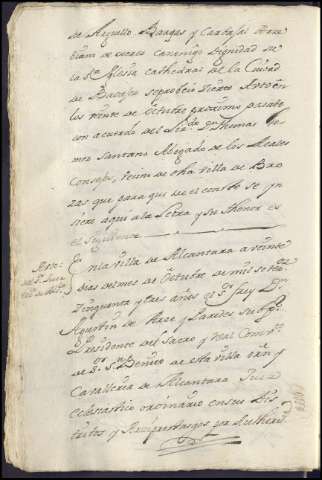 de Arguello Bargas y Carbajal Arze
diam de
canonigo Dignidad de
la Sta Iglesia Cathedral de la Ciudad
de Badajoz se probeió Zierto Auto en
los veinte de Octubre proximo pasado
con acuerdo del Lizdo Dn Thomas
Santano Abogado de los Reales
Consejos, vezino de esta villa de Bro
zas que para que de el conste se yn
siere aqui a la Letra y su thenor es
el siguiente
Auto
En la villa de Alcantara a veinte
dias del mes de Octubre de mil setezos
Zinquenta y tres años el Sr frey Dn
Agustin de Arze y Paredes Sub Pr
Presidente del Sacro y Real Convto
de Sr Sn Benito de esta villa orn y
Cavalleria de Alcantara Juez
eclesiastico ordinario en su Dis
trito y Azi por Autheri